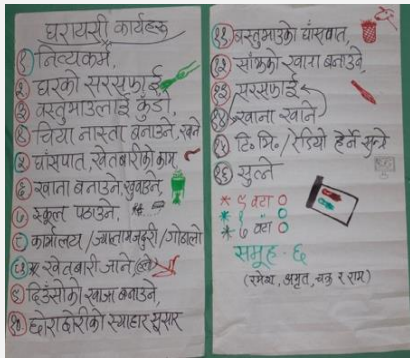 घरायसी कार्यहरू
१ नित्यकर्म,
२ घरको सरसफाई
३ वस्तुभाउलाई कुँडो,
४ चिया नास्ता बनाउने, खाने
५ घाँसपात, खेतबारीको काम
६ खाना बनाउने, खुवाउने,
७ स्कूल पठाउने,
८ कार्यालय / ज्यालामजदुरी / गोठालो
खेतबारी जाने
९ दिउँसोको खाजा बनाउने,
१० छोराछोरीको स्याहार सुसार
११ वस्तुभाउको घाँसपात,
१२ साँझको खाना बनाउने,
१३ सरसफाई
१४ खाना खाने
१५ टि.भि. / रेडियो हेर्ने सुन्ने
१६ सुत्ने
* ९ वटा ०
* १ " ०
* ७ वटा ०
समूह - ६
(रमेश, अमृत, चक्र र राम)